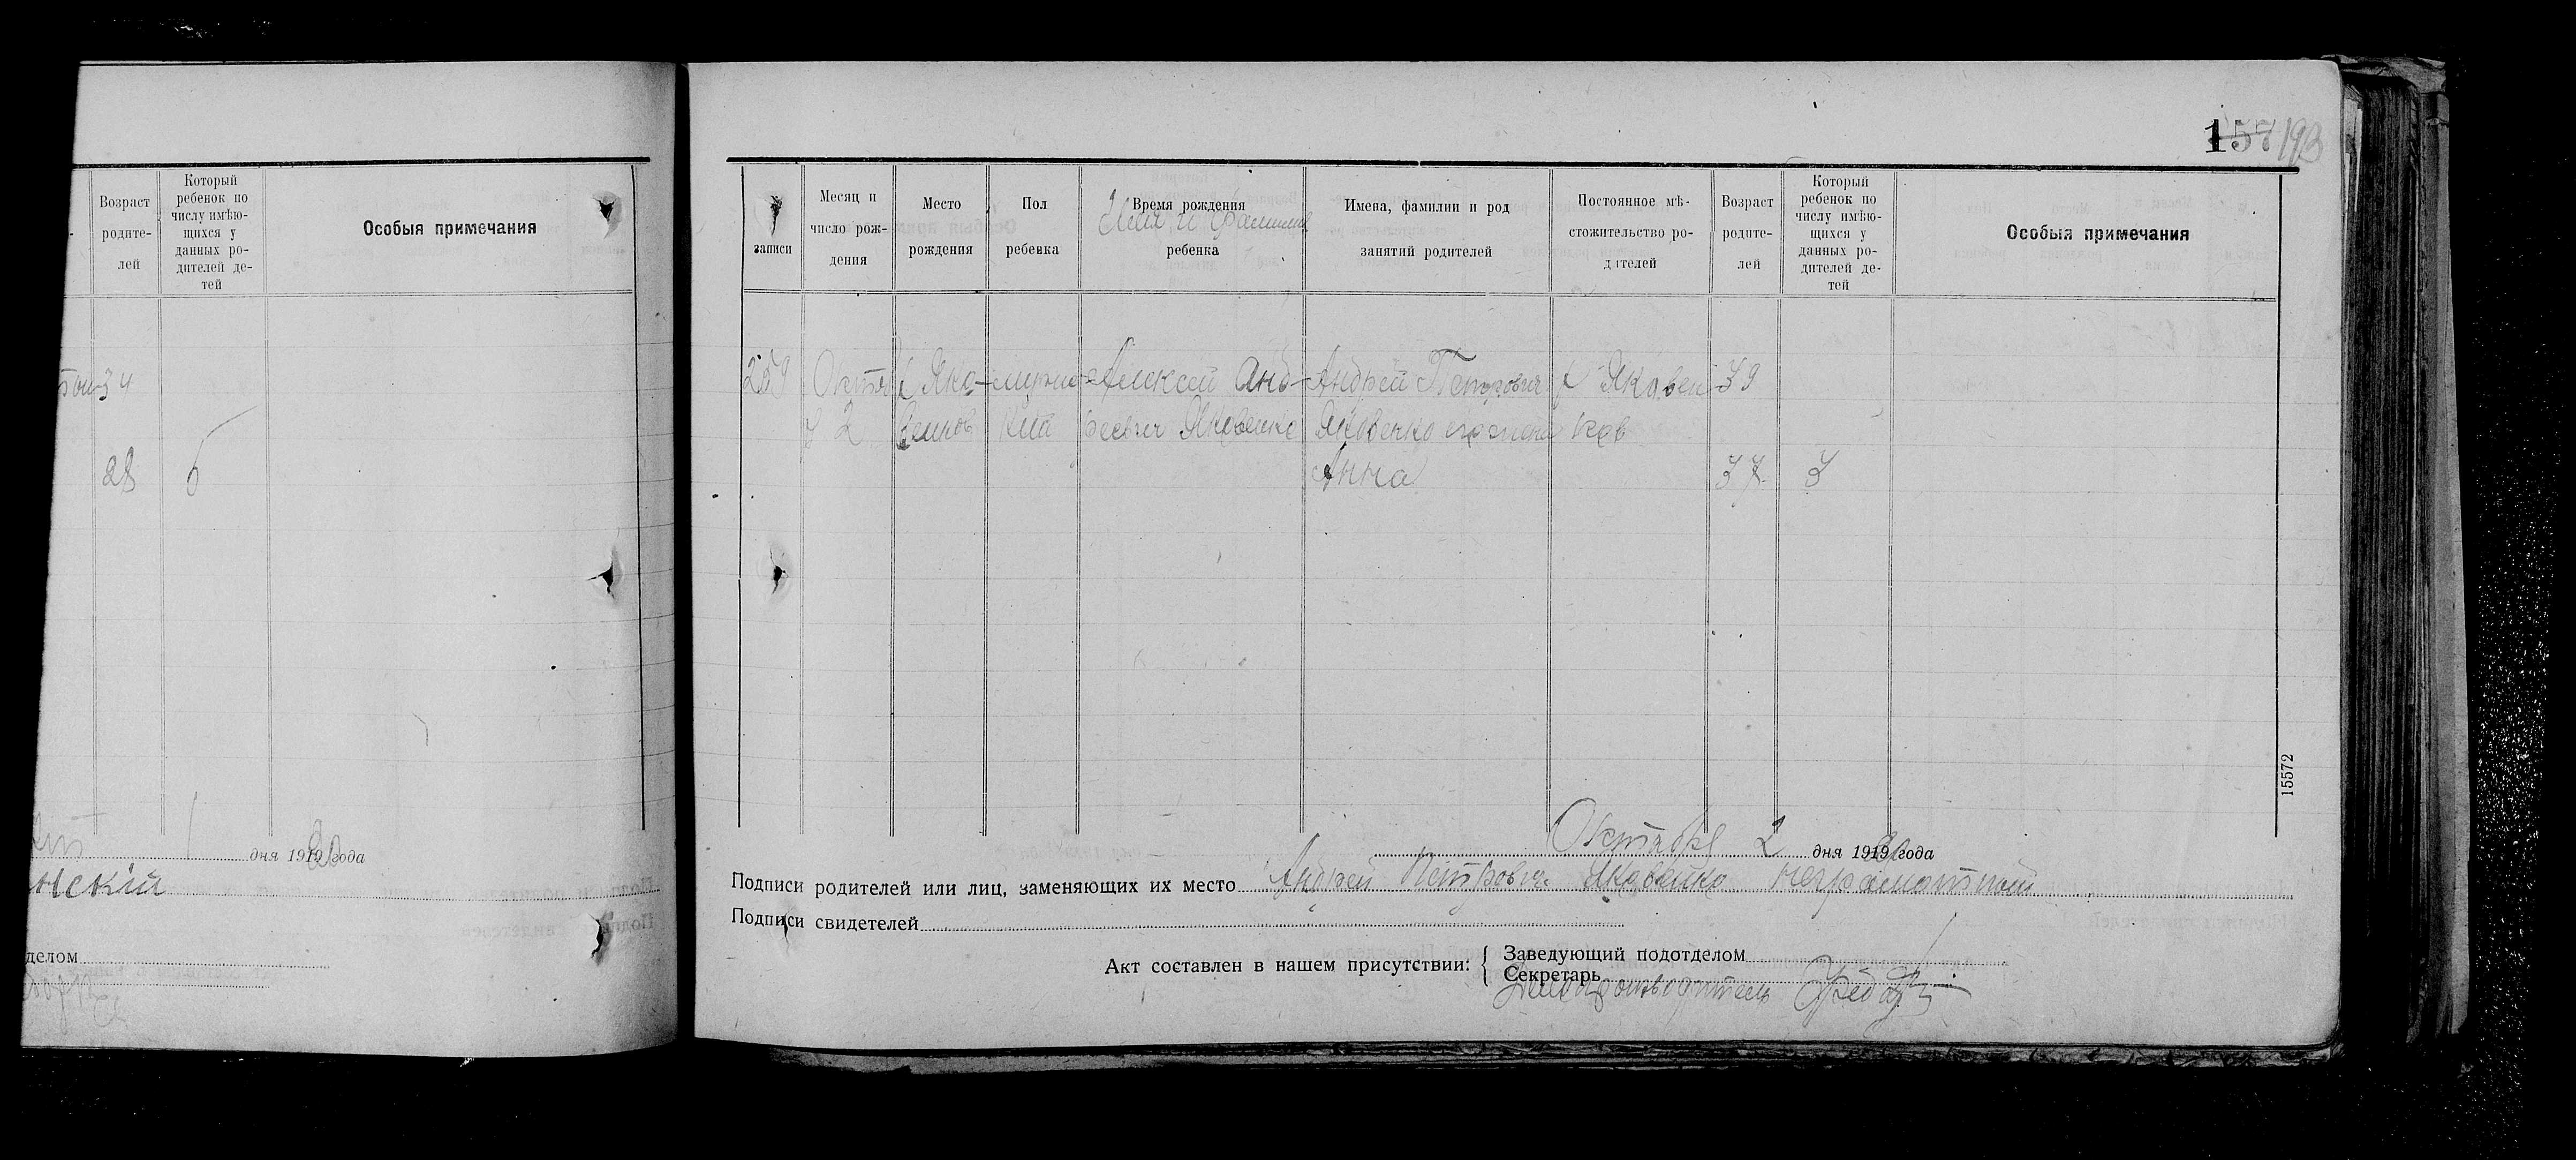 Возраст родите-лей
Который ребенок по числу имѣю-щихся у данных ро-дителей де-тей
Особыя примечания
34
28 6
дня 1919 года
нский
делом
157 193
записи
Месяц и число рож-дения
Место рождения
Пол ребенка
Время рождения ребенка
Имя и фамилия
Имена, фамилии и род занятий родителей
Постоянное мѣ-стожительство ро-дителей
Возраст родите-лей
Который ребенок по числу имѣю-щихся у данных ро-дителей де-тей
Особыя примечания
259 Октяб Яко- мужс- Алексей Анд- Андрей Петрович х Яковен- 39
2 венков кий реевич Яковенко Яковенко ков
Анна 37 3
15572
Октября 2 дня 1919 года
Подписи родителей или лиц, заменяющих их место Андрей Петрович Яковенко неграмотный
Подписи свидетелей
Акт составлен в нашем присутствии: { Заведующий подотделом
Секретарь
Делопроизводитель